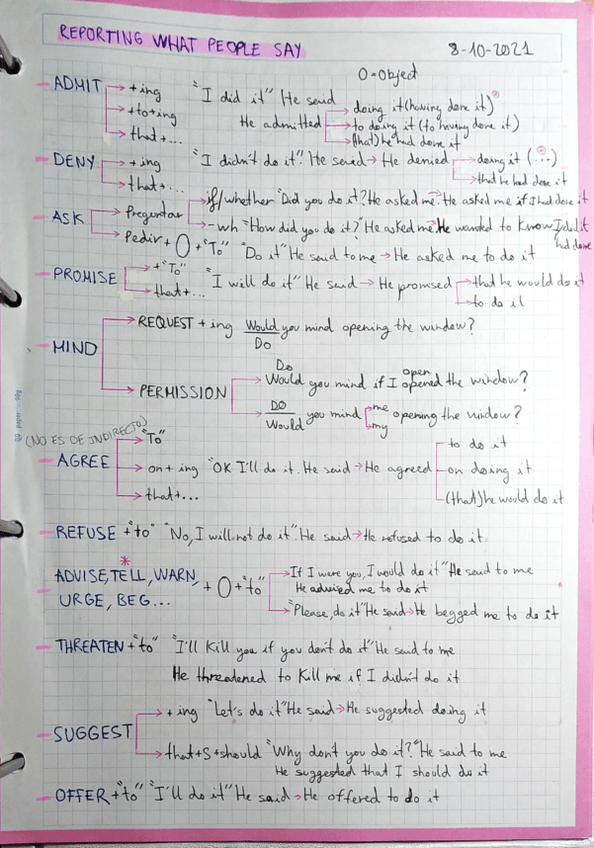 REPORTING WHAT PEOPLE SAY 8-10-2021
O=Object
ADMIT +ing "I did it" He said doing it (having done it)
+to+ing He admitted to doing it (to having done it)
that+... (that) he had done it
DENY +ing "I didn't do it". He said → He denied doing it (...)
that+... that he had done it
ASK Preguntar if/whether "Did you do it? He asked me → He asked me if I had done it
-wh "How did you do it?" He asked me → He wanted to know I did it
had done
Pedir + O + "To" "Do it" He said to me → He asked me to do it
PROMISE +"To" "I will do it" He said → He promised that he would do it
that+... to do it
MIND REQUEST + ing Would you mind opening the window?
Do
PERMISSION Do open
Would you mind if I opened the window?
DO you mind me opening the window?
Would my
(NO ES DE INDIRECTO)
AGREE "To" to do it
on + ing "OK I'll do it. He said → He agreed on doing it
that+... (that) he would do it
REFUSE +"to" "No, I will not do it" He said → He refused to do it.
ADVISE, TELL, WARN, + O + "to" If I were you, I would do it" He said to me
* He advised me to do it
URGE, BEG... "Please, do it" He said → He begged me to do it
THREATEN +"to" "I'll kill you if you don't do it" He said to me
He threatened to kill me if I didn't do it
SUGGEST +ing "Let's do it" He said → He suggested doing it
that+S+should "Why don't you do it?" He said to me
He suggested that I should do it
OFFER +"to" "I'll do it" He said → He offered to do it